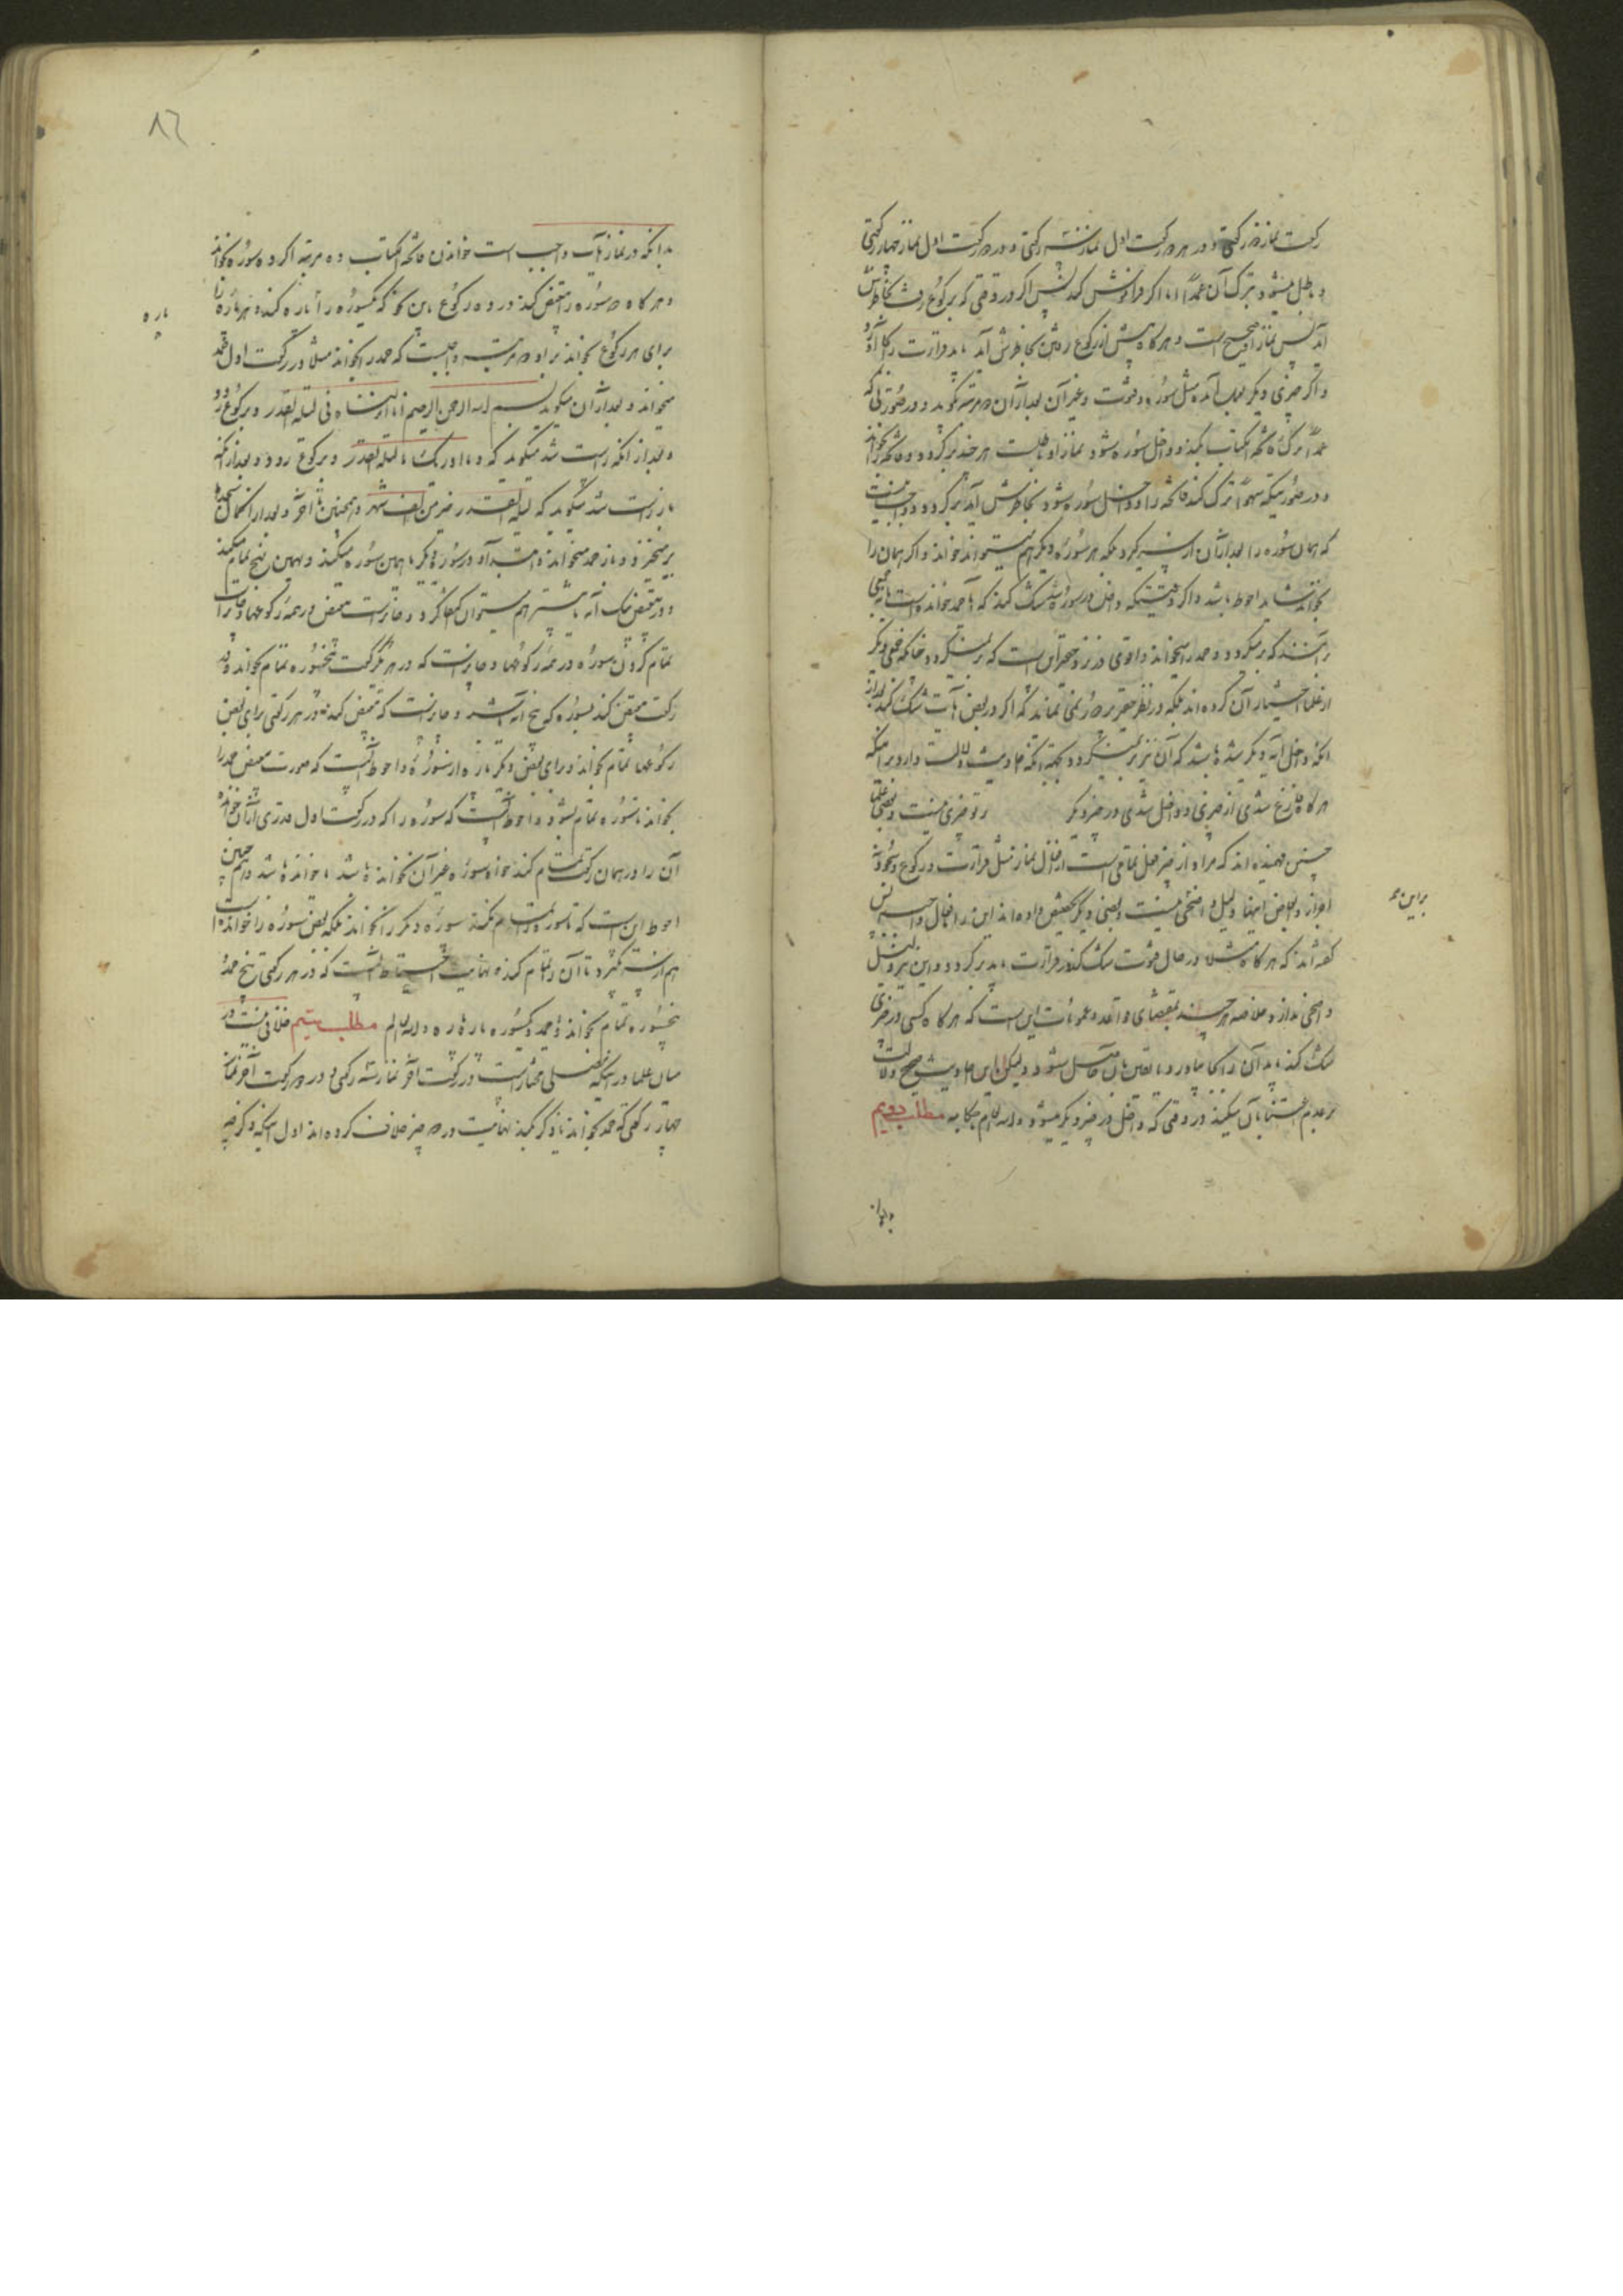 رکعت نماز دو رکعتی و در هر دو رکعت اول نماز سه رکعتی و در دو رکعت اول نماز چهار رکعتی
و باطل میشود بترک آن عمداً اما اگر فراموش کند پس اگر در وقتی که برکوع رفت بخاطرش
آید پس نماز او صحیح است و هرگاه پیش از رکوع رفتن بخاطرش آید باید قرائت را بجا آورد
و اگر چیزی دیگر بعمل آمده مثل سوره و قنوت و غیر آن بعد از آن دو مرتبه بگوید و در صورتی که
عمداً ترک فاتحة الکتاب کند و داخل سوره شود نماز او باطلست هر چند برگردد و فاتحه را بخواند
و در صورتیکه سهواً ترک کند فاتحه را و داخل سوره شود بخاطرش آید برگردد و واجب نیست
که همان سوره را بعد از آن از سر گیرد بلکه هر سوره دیگر هم میتواند خواند و اگر همان را
بخواند شاید احوط باشد و اگر وقتیکه داخل در سوره شد شک کند که آیا حمد خوانده است یا نه بعضی
بر آنند که برمیگردد و حمد را میخواند و اقوی در نزد حقیر آن است که برنمیگردد چنانکه بعضی دیگر
از علما اختیار آن کرده‌اند بلکه در نظر حقیر
آنکه داخل آیه دیگر شده باشد که آن نیز برنمیگردد بجهة آنکه احادیث دلالت دارد بر اینکه
هرگاه فارغ شدی از چیزی و داخل شدی در چیز دیگر
چنین فهمیده‌اند که مراد از چیز فعل تمامی است از افعال نماز مثل قرائت و رکوع و سجود نه
اجزاء و ابعاض اینها و دلیل واضحی نیست و بعضی دیگر
براین مد
گفته‌اند که هرگاه مثلا در حال قنوت شک کند در قرائت باید برگردد و این نیز دلیل
واضحی ندارد و خلاصه هر چند بمقتضای قواعد و عمومات این است که هرگاه کسی در چیزی
شک کند باید آن را بجا بیاورد تا یقین بآن حاصل شود و لیکن این احادیث صحیح دلالت
بر عدم اعتنا بآن میکند در وقتی که داخل در چیز دیگر میشود والله العالم باحکامه مطلب دویم
بدانکه
۸۲
بدانکه در نماز آیات واجب است خواندن فاتحة الکتاب ده مرتبه اگر ده سوره بخواند
و هرگاه دو سوره را تبعیض کند در ده رکوع باین نحو که یکسوره را پاره پاره کند و هر پاره را
پاره
برای هر رکوع بخواند بر او دو مرتبه واجبست که حمد را بخواند مثلا در رکعت اول حمد
میخواند و بعد از آن میگوید بسم الله الرحمن الرحیم انا انزلناه فی لیلة القدر و برکوع رود
و بعد از آنکه راست شد میگوید که و ما ادریک ما لیلة القدر و برکوع رود و بعد از آنکه
باز راست شد میگوید که لیلة القدر خیر من الف شهر و همچنین تا آخر و بعد از اکمال سجدها
برمیخیزد و باز حمد میخواند
و در تبعیض یک آیه یا بیشتر هم میتوان اکتفا کرد و جایز است تبعیض در همه رکوعها و جایز است
تمام کردن سوره در همه رکوعها و جایز است که در هر رکعت پنج سوره تمام بخواند و در
رکعت تبعیض کند بسوره که پنج آیه باشد و جایز است که تبعیض کند در هر رکعتی برای بعضی
رکوعها تمام بخواند و برای بعضی دیگر پاره از سوره و احوط آنست که در صورت تبعیض حمد را
بخواند تا سوره تمام شود و احوط آنست که سوره را که در رکعت اول قدری از آن خوانده
آن را در همان رکعت تمام کند خواه سوره غیر آن نخوانده باشد یا خوانده باشد و همچنین
احوط این است که تا سوره را تمام نکند سوره دیگر را نخواند بلکه بعض سوره را خوانده است
هم از سر نگیرد تا آن را تمام کند و نهایت احتیاط آنست که در هر رکعتی پنج حمد و
پنج سوره تمام بخواند یا حمد و یکسوره پاره پاره والله العالم مطلب سیم خلافی نیست در
میان علما در اینکه مصلی مختار است در رکعت آخر نماز سه رکعتی و در دو رکعت آخر نماز
چهار رکعتی که حمد بخواند یا ذکر بکند نهایت در دو چیز خلاف کرده‌اند اول اینکه ذکر چه